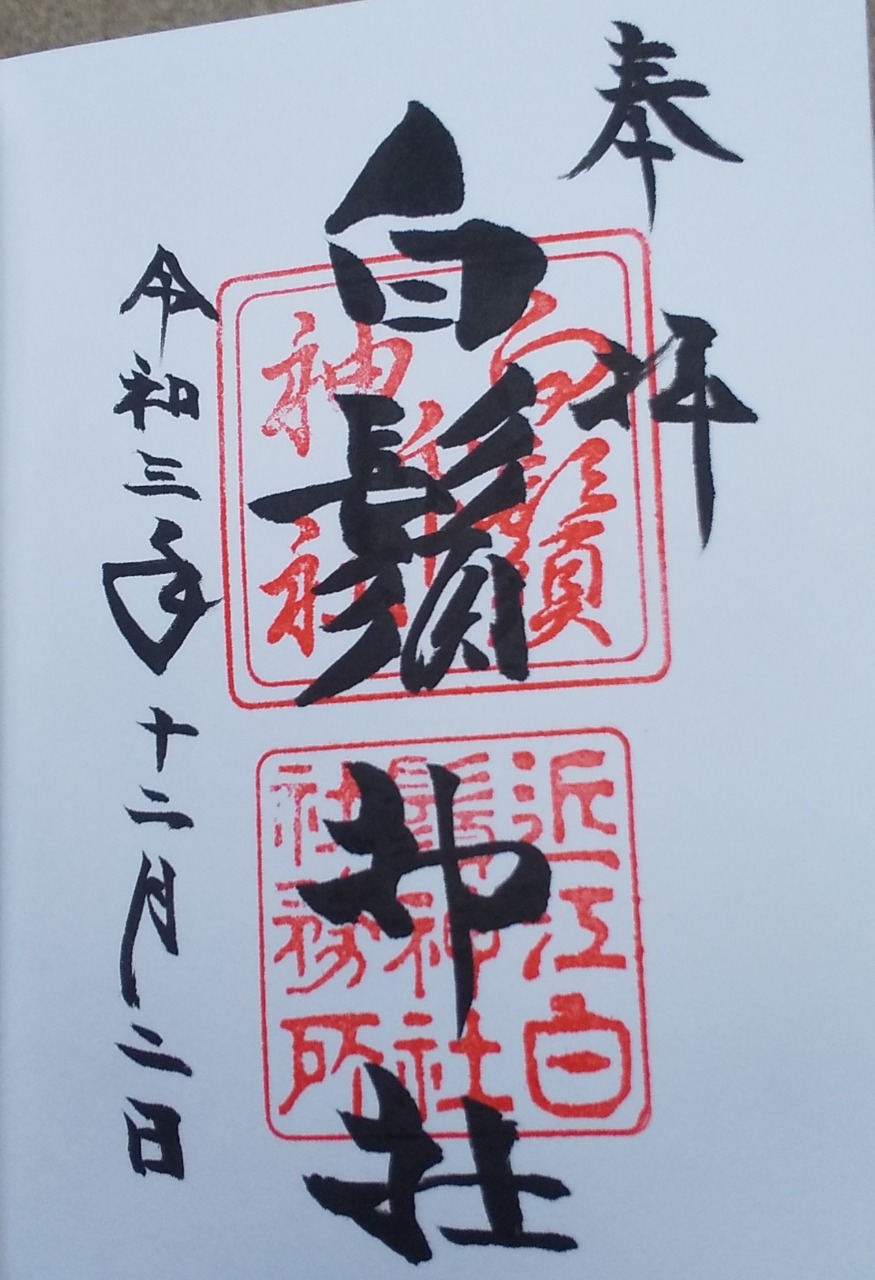 奉拝
白鬚神社
令和三年十二月二日
近江白
鬚神社
社務所